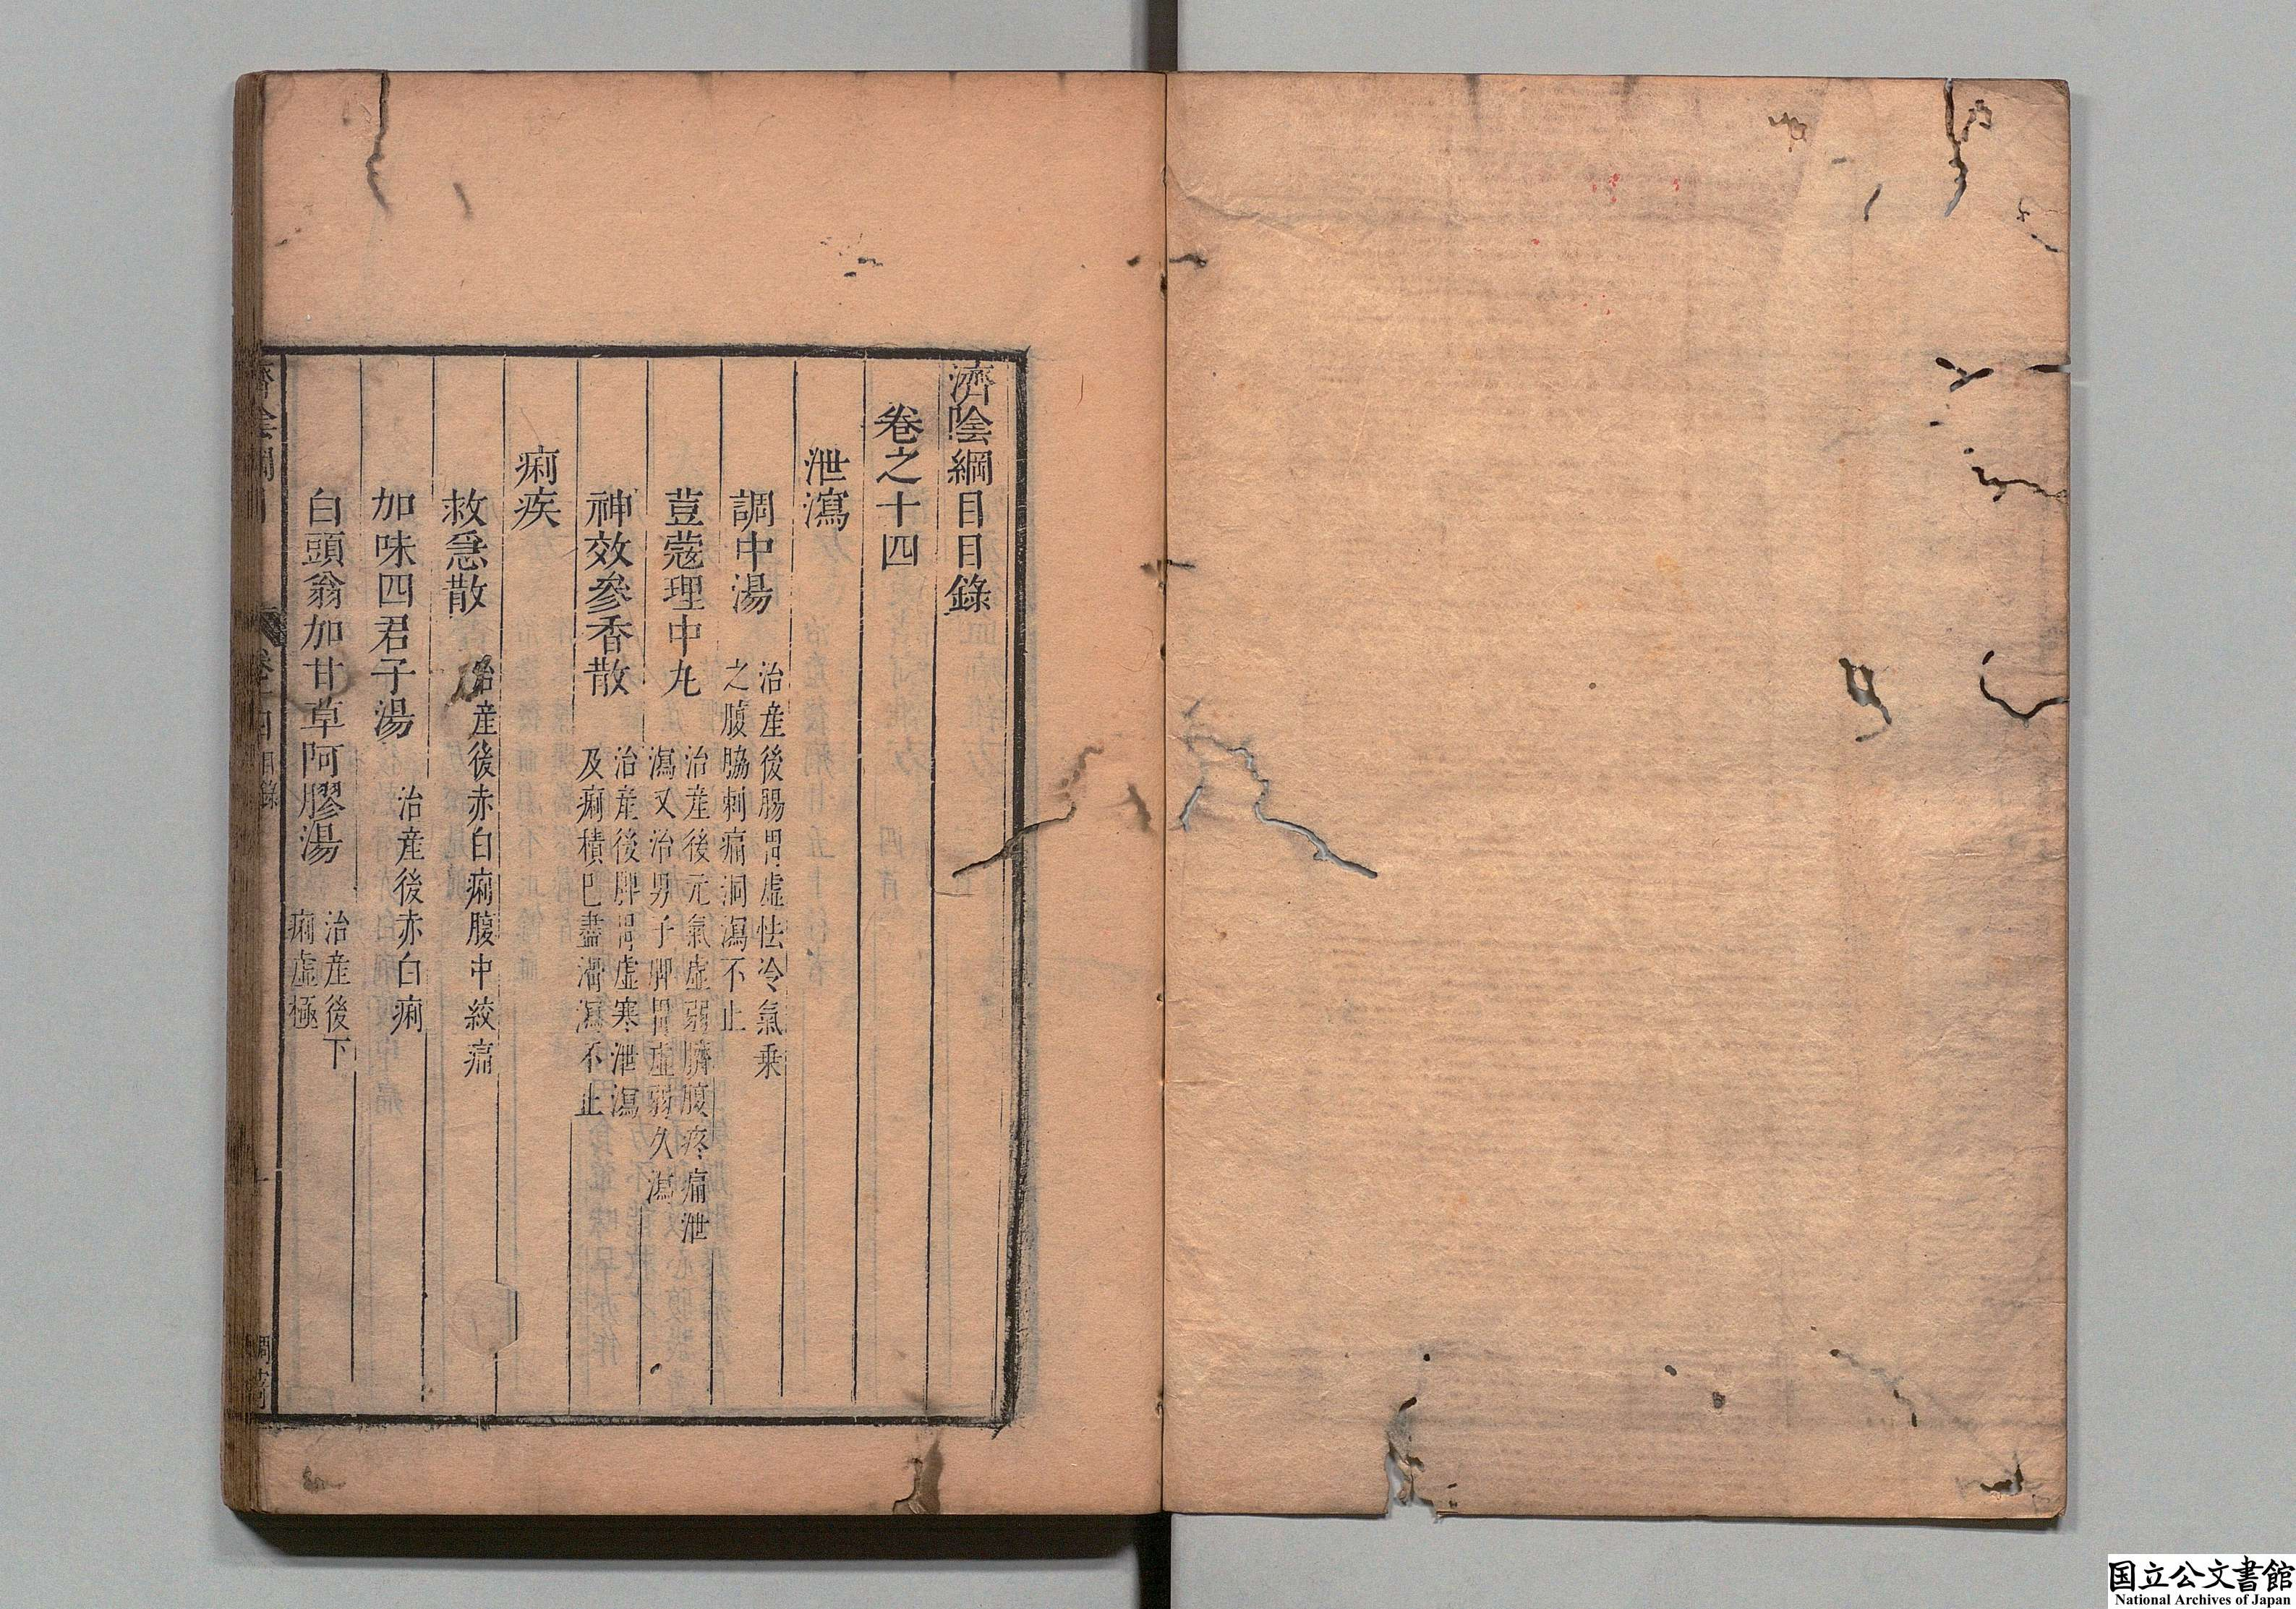 濟陰綱目目錄
卷之十四
泄瀉
調中湯 治産後腸胃虛怯冷氣乗
之腹脇刺痛洞瀉不止
荳蔻理中丸 治産後元氣虛弱臍腹疼痛泄
瀉又治男子脾胃虛弱久瀉
神效參香散 治産後脾胃虛寒泄瀉
及痢積巳盡溏瀉不止
痢疾
救急散 治産後赤白痢腹中絞痛
加味四君子湯 治産後赤白痢
白頭翁加甘草阿膠湯 治産後下
痢虛極
国立公文書館
National Archives of Japan